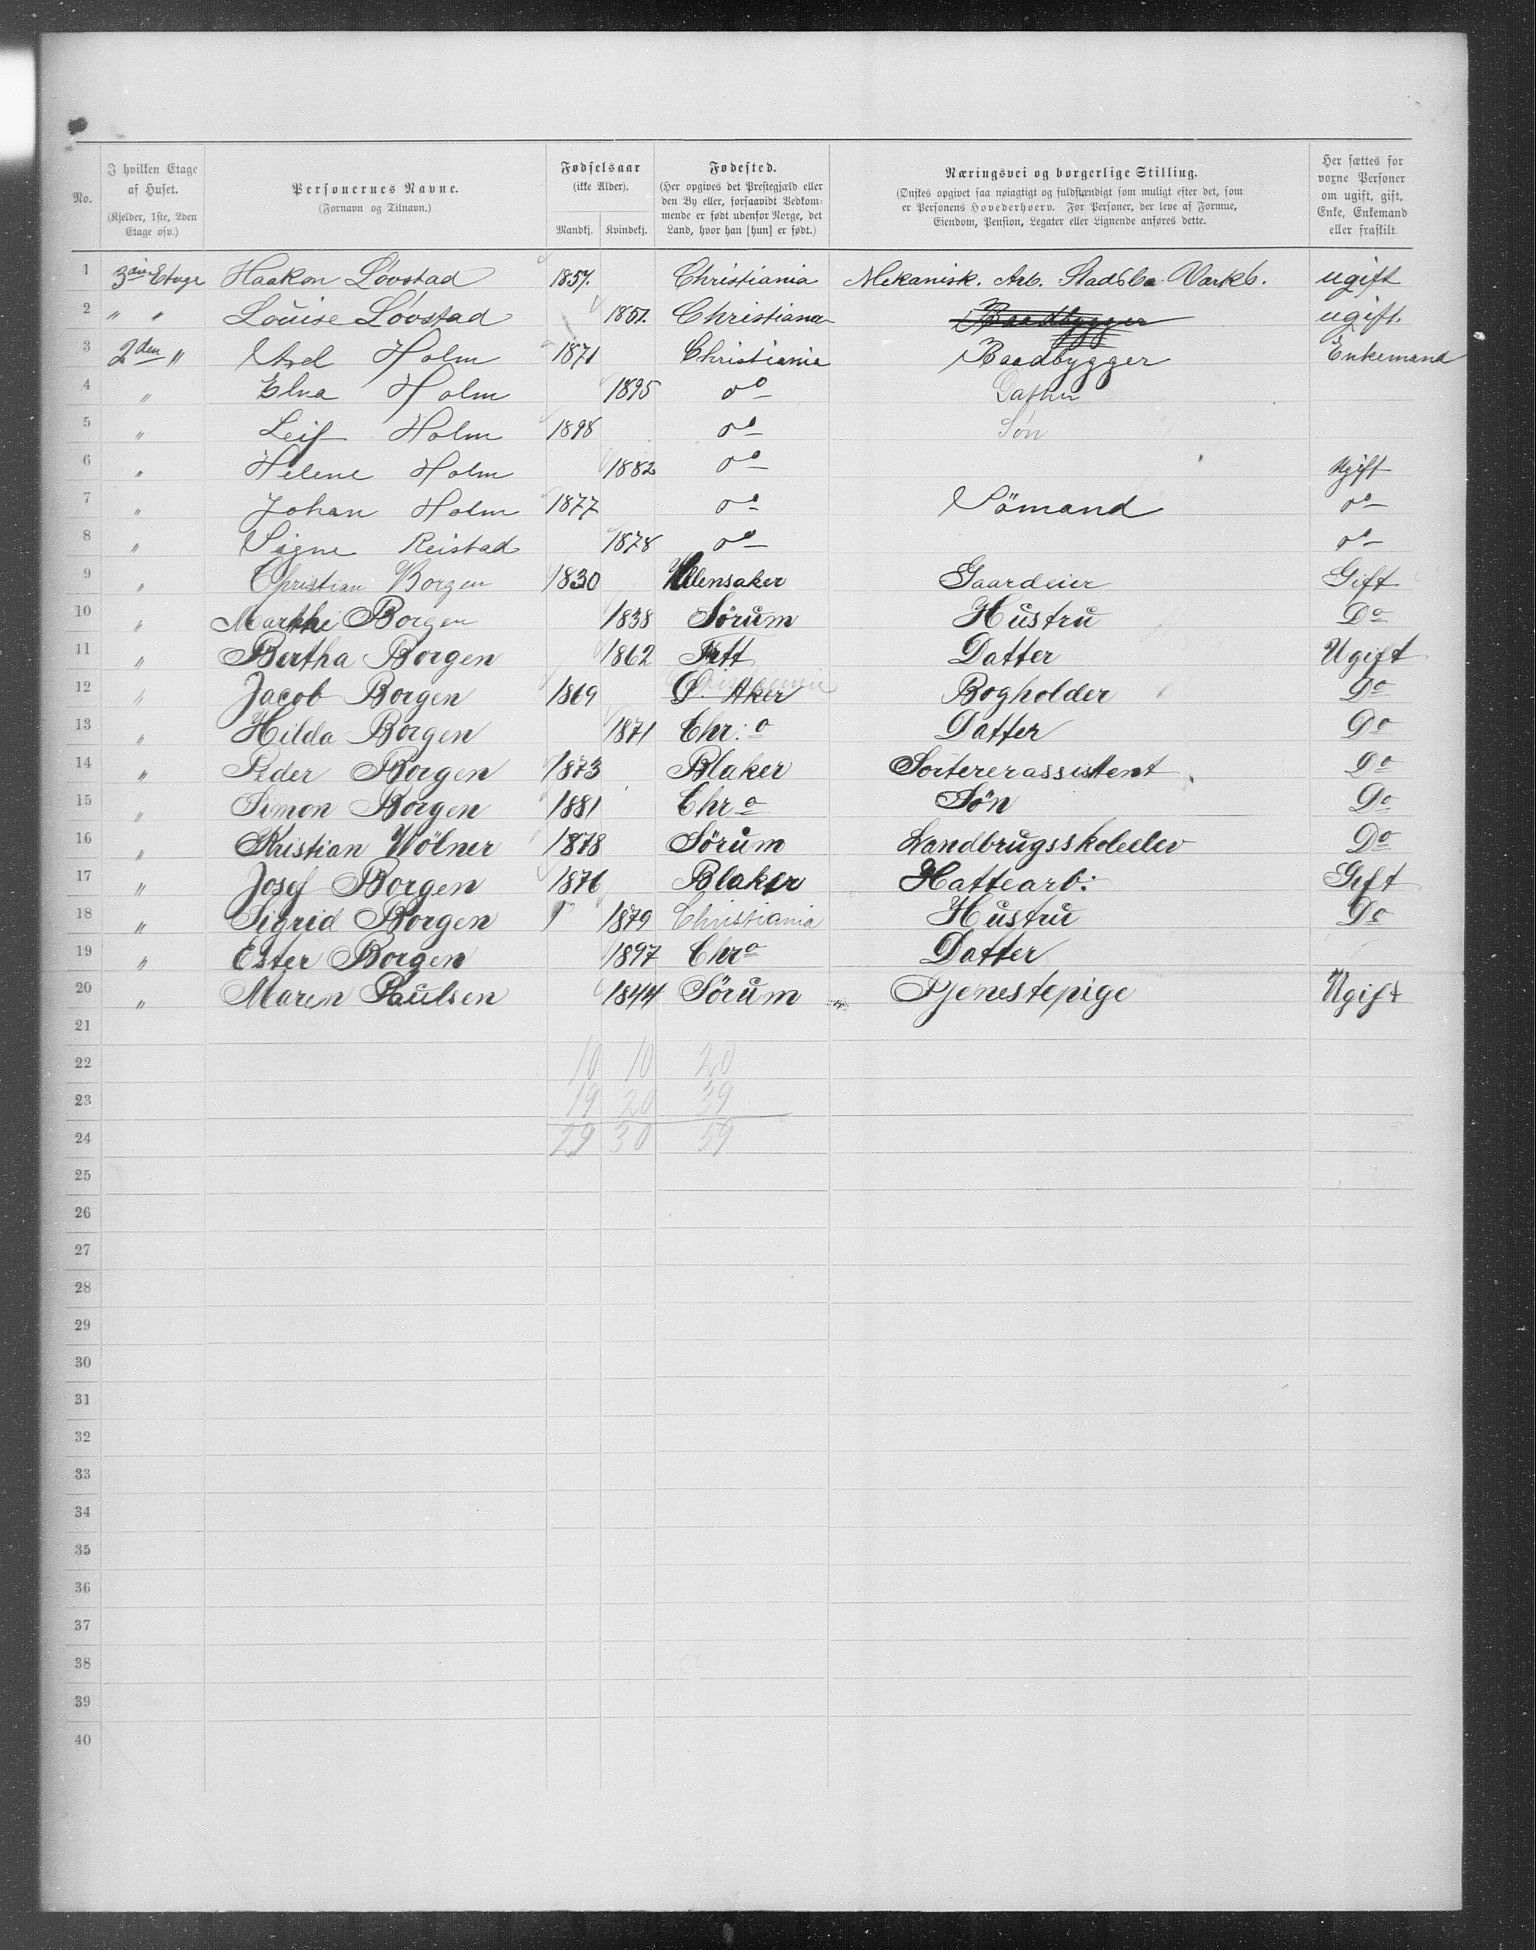 No. | I hvilken Etage af Huset. (Kjelder, 1ste, 2den Etage osv.) | Personernes Navne. (Fornavn og Tilnavn.) | Fødselsaar (ikke Alder). Mandkj. Kvindekj. | Fødested. (Her opgives det Prestegjæld eller den By eller, forsaavidt Vedkommende er født udenfor Norge, det Land, hvor han [hun] er født.) | Næringsvei og borgerlige Stilling. (Ønskes opgivet saa nøiagtigt og fuldstændigt som muligt efter det, som er Personens Hovederhverv. For Personer, der leve af Formue, Eiendom, Pension, Legater eller Lignende anføres dette.) | Her sættes for voxne Personer om ugift, gift, Enke, Enkemand eller fraskilt.
1 3die Etage Haakon Løvstad 1857. Christiania Mekanisk. Arb. Stadsba Værks. ugift
2 " " Louise Løvstad 1851. Christiania Baadbygger ugift.
3 2den " Axel Holm 1871 Christiania Baadbygger Enkemand
4 " Elna Holm 1895 do Datter
5 " Leif Holm 1898 do Søn
6 " Helene Holm 1882 do Ugift
7 " Johan Holm 1877 do Sömand do
8 " Signe Reistad 1878 do do
9 " Christian Borgen 1830 Ullensaker Gaardeier Gift
10 " Marthe Borgen 1838 Sørum Hustru Do
11 " Bertha Borgen 1862 Fett Datter Ugift
12 " Jacob Borgen 1869 Ø. Aker Christiania Bogholder Do
13 " Hilda Borgen 1871 Chr:a Datter Do
14 " Peder Borgen 1873 Blaker Sorterer assistent Do
15 " Simon Borgen 1881 Chra Søn Do
16 " Kristian Wölner 1878 Sørum Landbrugsskoleelev Do
17 " Josef Borgen 1876 Blaker Hattearb: Gift
18 " Sigrid Borgen 1879 Christiania Hustru Do
19 " Ester Borgen 1897 Chra Datter
20 " Maren Paulsen 1844 Sørum Tjenestepige Ugift
21
22 10 10 20
23 19 20 39
24 29 30 59
25
26
27
28
29
30
31
32
33
34
35
36
37
38
39
40